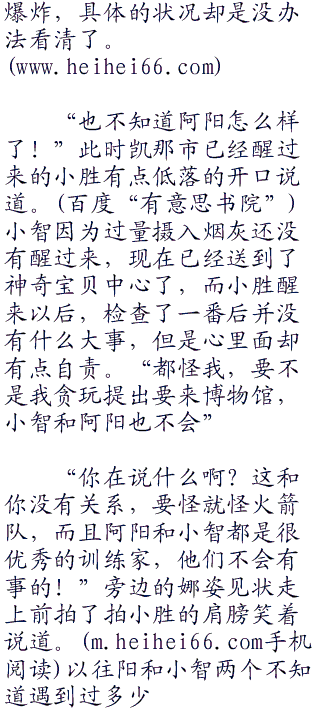 爆炸，具体的状况却是没办
法看清了。
(www.heihei66.com)
“也不知道阿阳怎么样
了！”此时凯那市已经醒过
来的小胜有点低落的开口说
道。(百度“有意思书院”)
小智因为过量摄入烟灰还没
有醒过来，现在已经送到了
神奇宝贝中心了，而小胜醒
来以后，检查了一番后并没
有什么大事，但是心里面却
有点自责。“都怪我，要不
是我贪玩提出要来博物馆，
小智和阿阳也不会”
“你在说什么啊？这和
你没有关系，要怪就怪火箭
队，而且阿阳和小智都是很
优秀的训练家，他们不会有
事的！”旁边的娜姿见状走
上前拍了拍小胜的肩膀笑着
说道。(m.heihei66.com手机
阅读)以往阳和小智两个不知
道遇到过多少